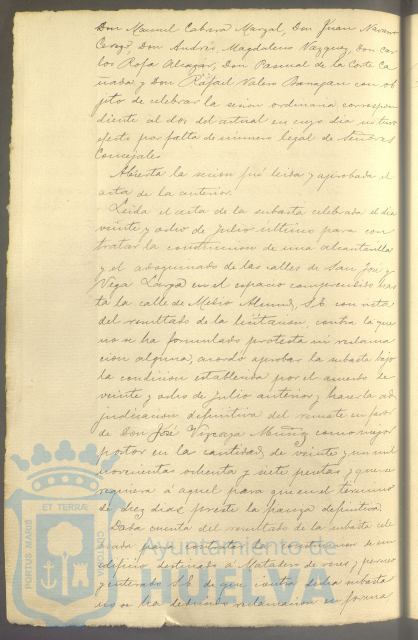 Don Manuel Cabrera Marzal, Don Juan Navarro
Don Andrés Magdaleno Vazquez, Don Car
los Rofa Alcazar, Don Pascual de la Corte Ca
ñada y Don Rafael Valero con ob
jeto de celebrar la sesion ordinaria correspon
diente al dos del actual en cuyo dia no tuvo
efecto por falta de número legal de Señores
Concejales.
Abierta la sesion fué leida y aprobada el
acta de la anterior.
Leida el acta de la subasta celebrada el dia
veinte y ocho de Julio último para con
tratar la construccion de una alcantarilla
y el adoquinado de las calles de San José y
Vega Larga en el espacio comprendido has
ta la calle de Medio Almud, S.E. con vista
del resultado de la licitacion, contra la que
no se ha formulado protesta ni reclama
cion alguna, acordo aprobar la subasta bajo
la condicion establecida por el acuerdo de
veinte y ocho de Julio anterior y hacer la ad
judicacion definitiva del remate en favor
de Don José Muñoz como mejor
postor en la cantidad de veinte y un mil
novecientas ochenta y siete pesetas y que se
requiera á aquel para que en el término
de diez dias preste la fianza definitiva.
Dada cuenta del resultado de la subasta cele
brada para contratar la construccion de un
edificio destinado á Matadero de reses,
y enterado S.E. de que contra dicha subasta
no se ha deducido reclamacion en forma
PORTUS MARIS ET TERRÆ CUSTODIA
Ayuntamiento de
HUELVA